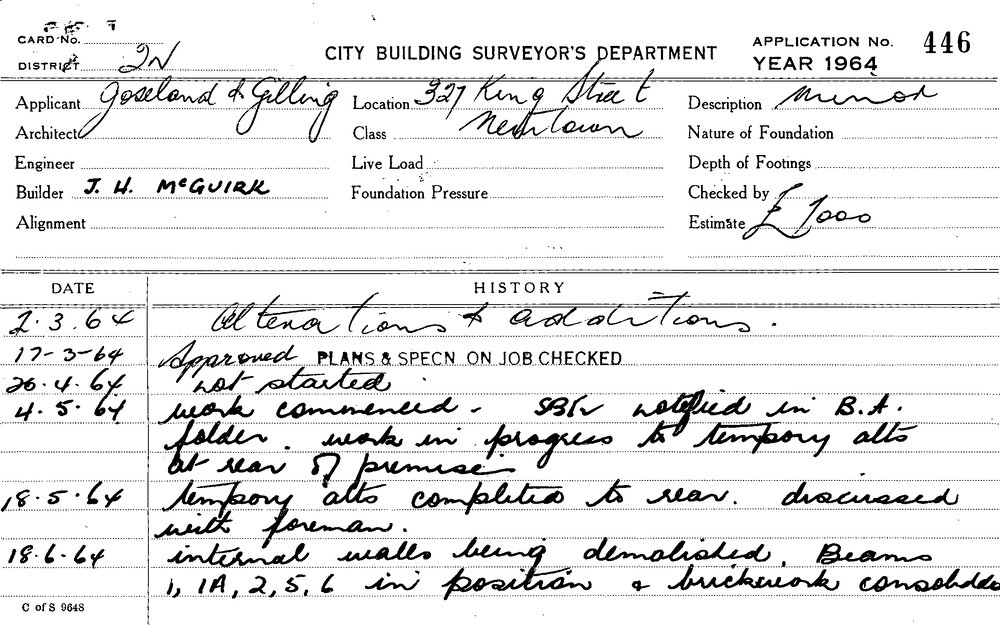 CARD No.
DISTRICT 2N
CITY BUILDING SURVEYOR'S DEPARTMENT
APPLICATION No. 446
YEAR 1964
Applicant Joseland & Gilling
Location 327 King Street
Newtown
Description Minor
Architect
Class
Nature of Foundation
Engineer
Live Load
Depth of Footings
Builder J. H. McGUIRK
Foundation Pressure
Checked by
Alignment
Estimate £7000
DATE HISTORY
2.3.64 Alterations & additions.
17-3-64 Approved PLANS & SPECN. ON JOB CHECKED
20.4.64 not started
4.5.64 work commenced - notified in B.A.
folder. work in progress to tempory alts
at rear of premises
18.5.64 tempory alts completed to rear. discussed
with foreman.
18.6.64 internal walls being demolished. Beams
1, 1A, 2, 5, 6 in position & brickwork
C of S 9648